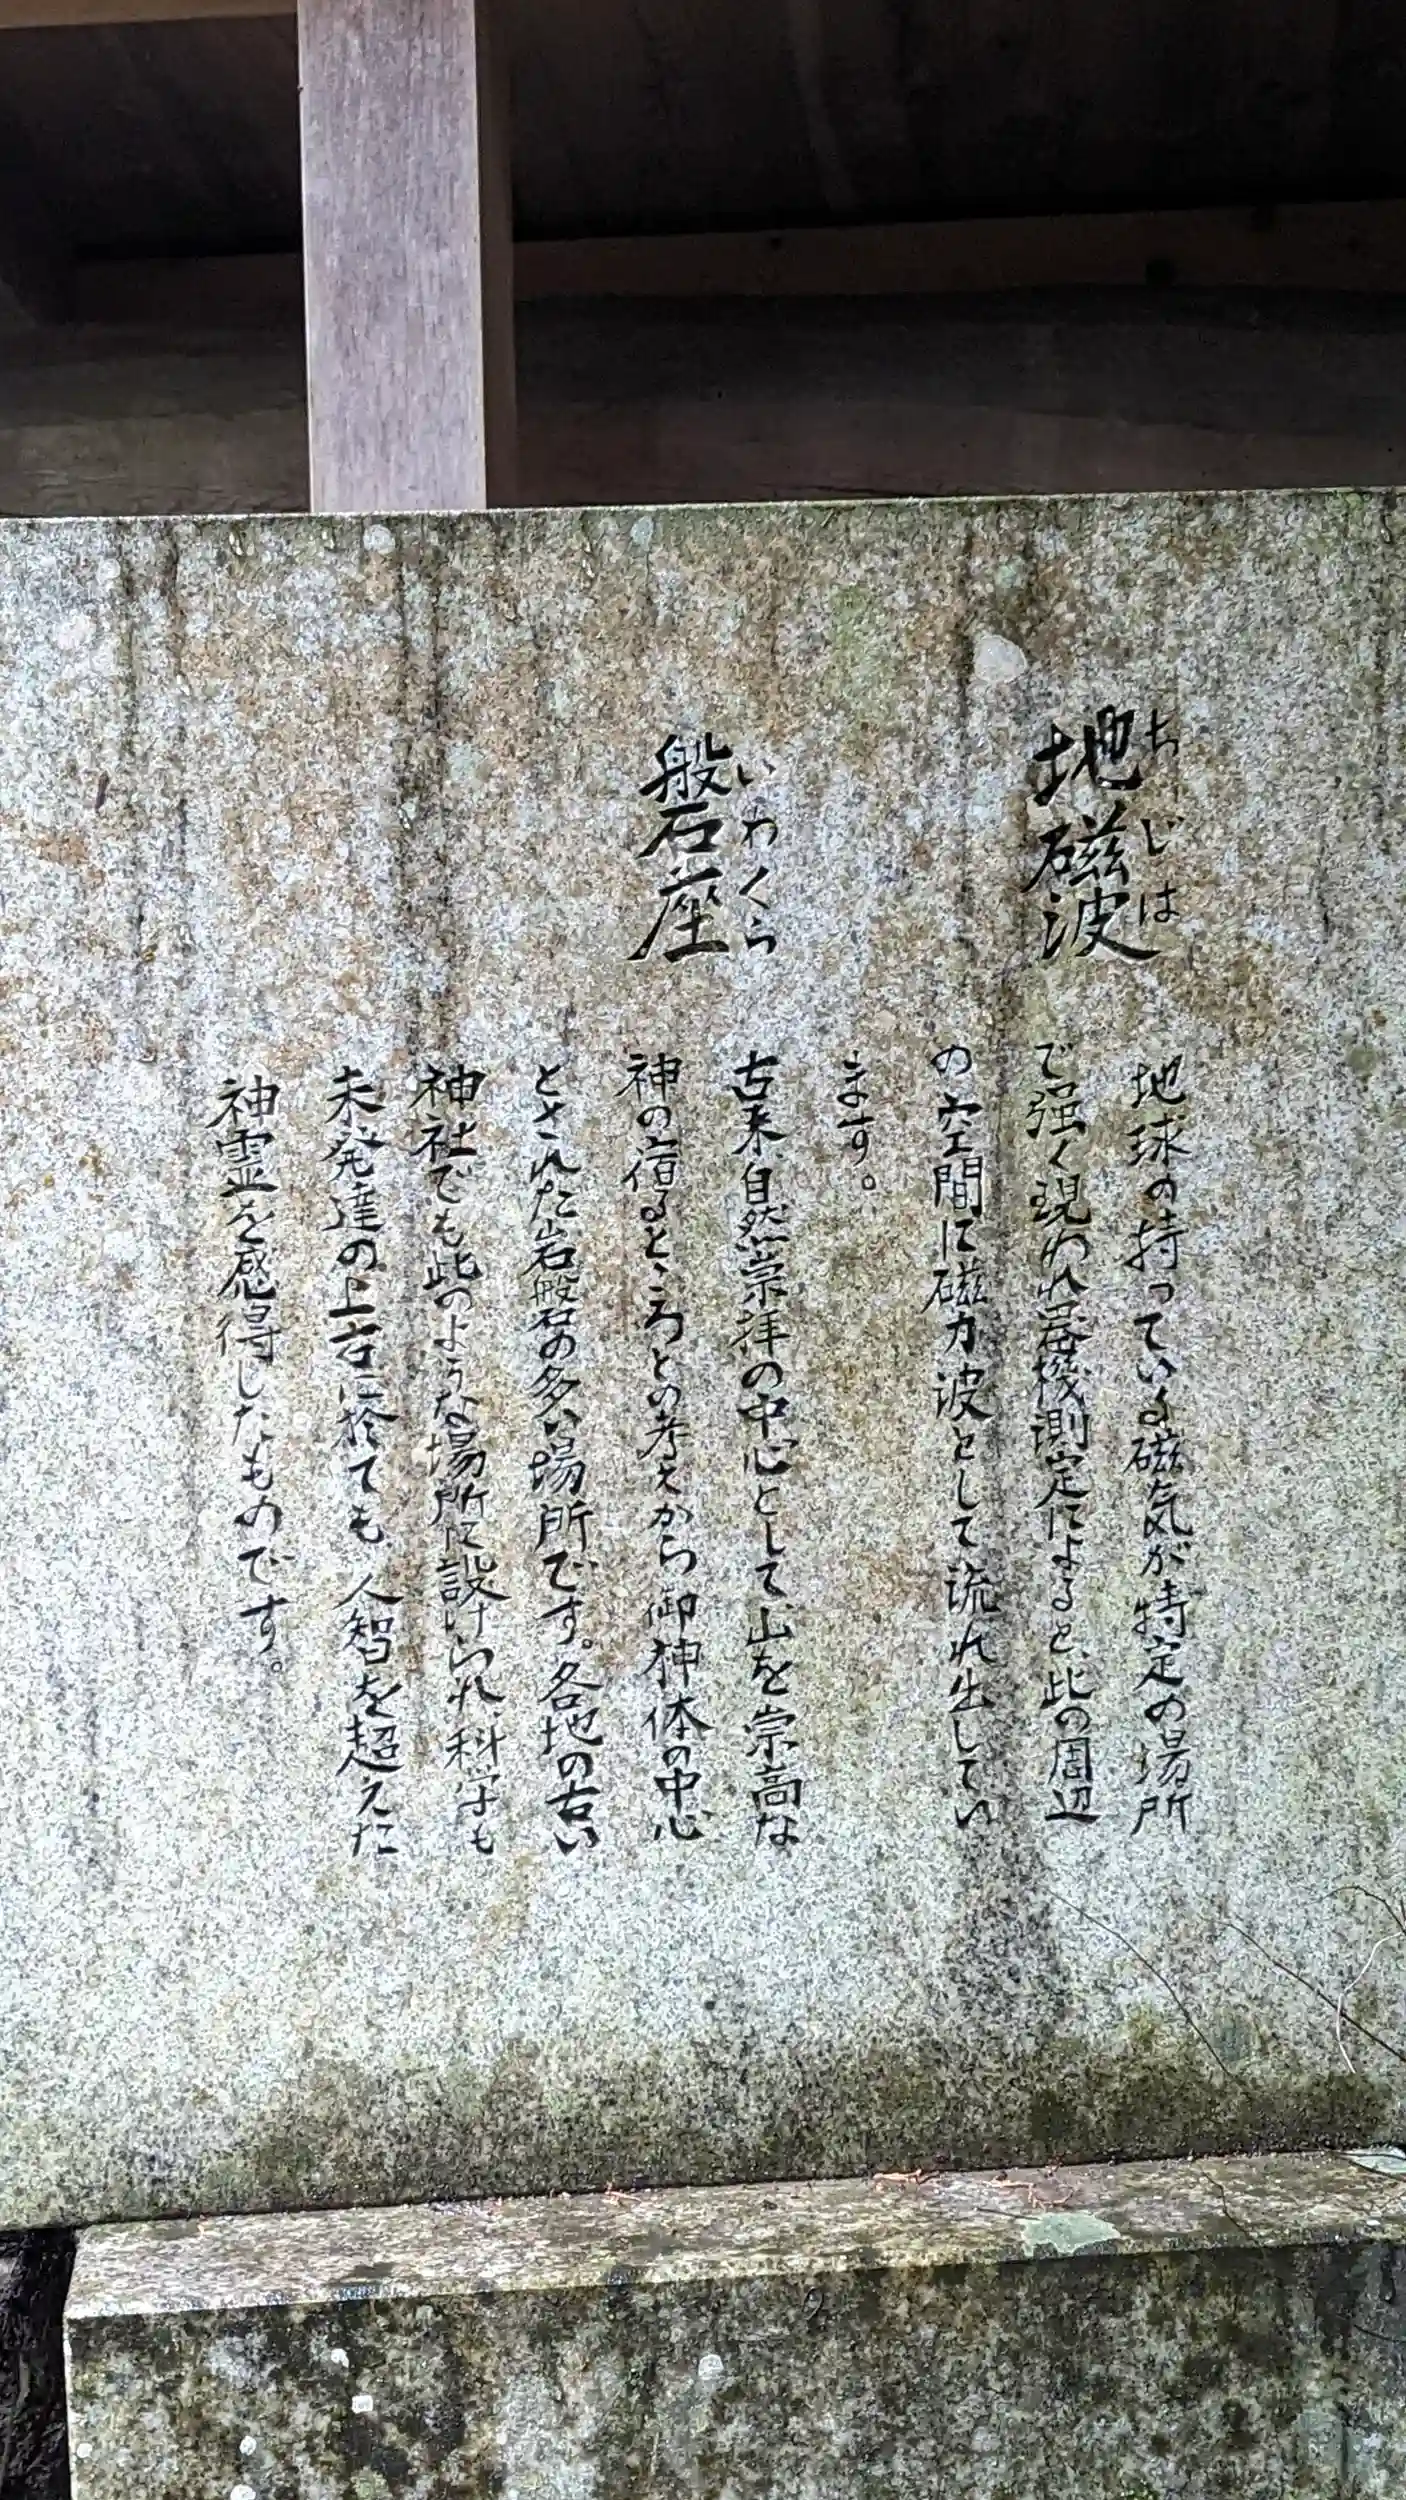 地磁波
ちじは
地球の持っている磁気が特定の場所
で強く現われ器機測定によると、此の周辺
の空間に磁力波として流れ出してい
ます。
磐座
いわくら
古来自然崇拝の中心として、山を崇高な
神の宿るところとの考えから御神体の中心
とされた岩磐の多い場所です。各地の古い
神社でも此のような場所に設けられ、科学も
未発達の上古に於ても人智を超えた
神霊を感得したものです。